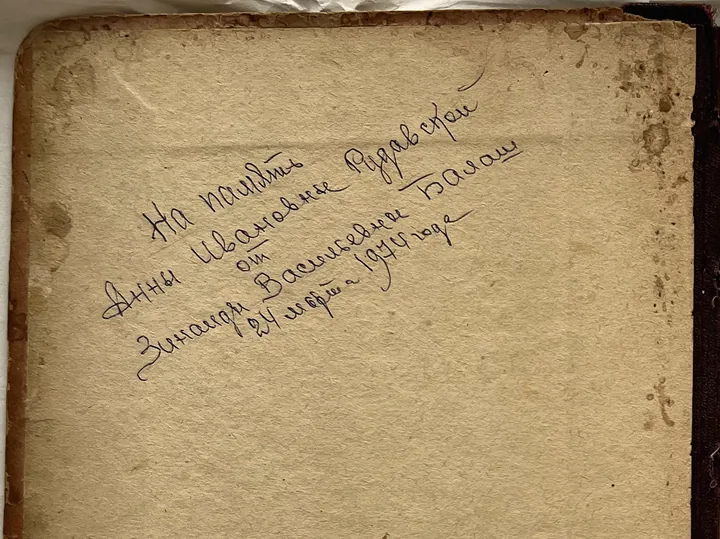 На память
Анны Ивановне Рудавской
от
Зинаиды Васильевны Балаш
24 марта 1974 года